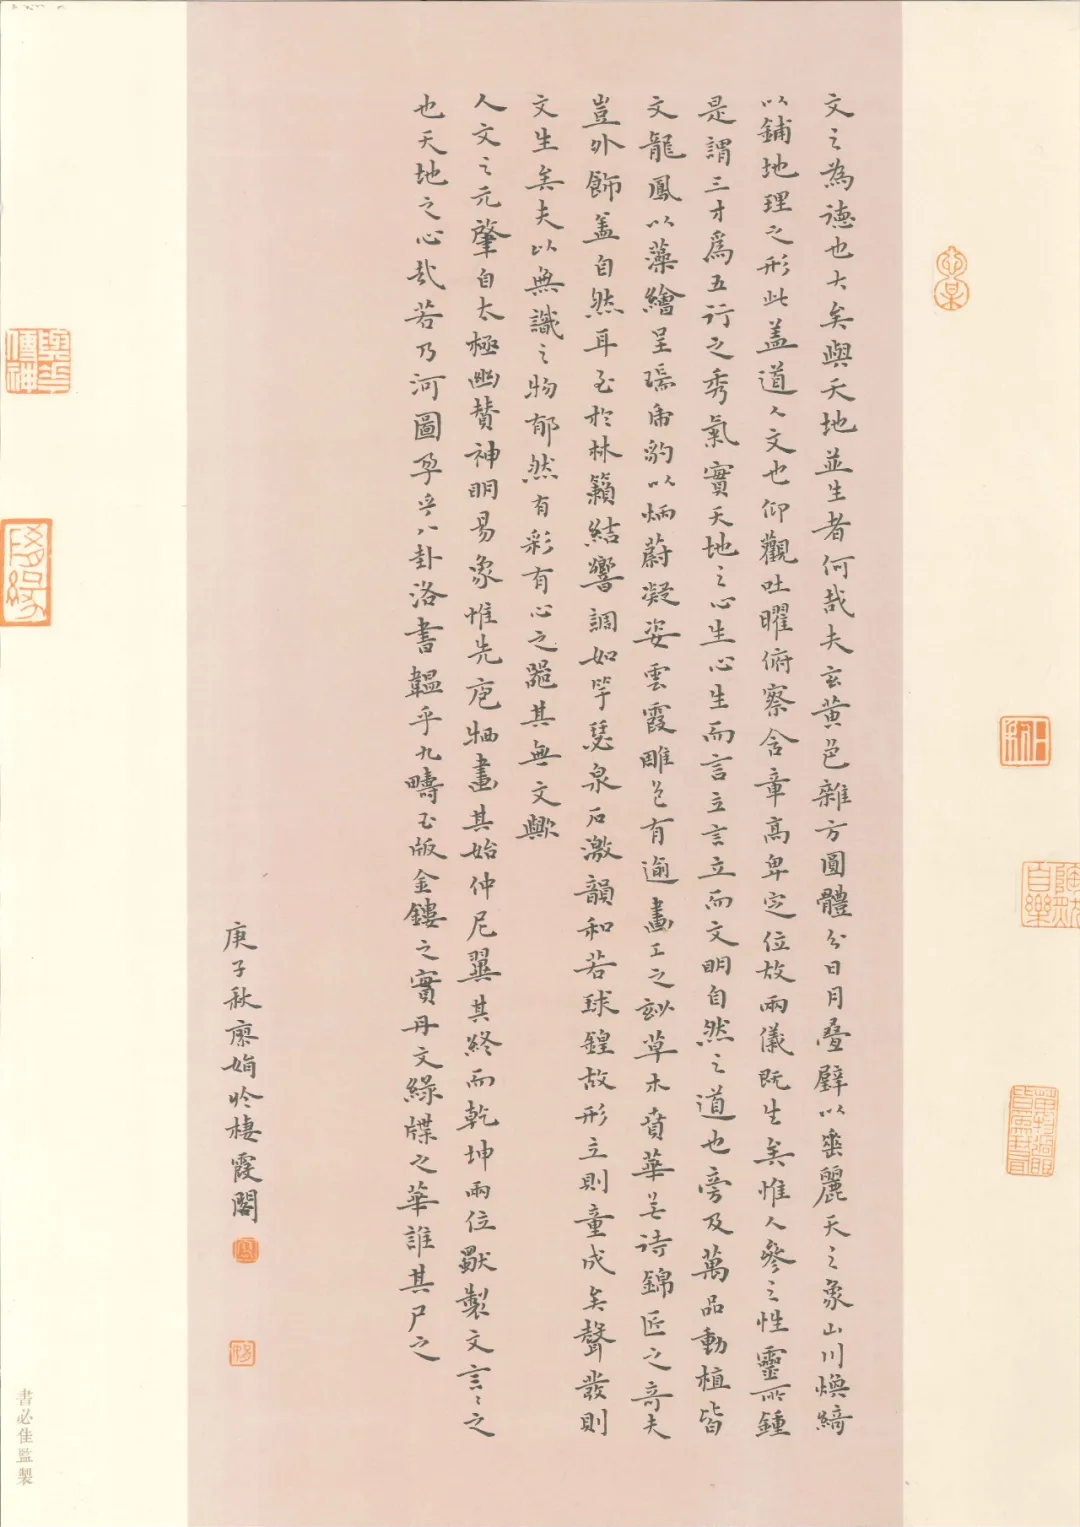 文之為德也大矣與天地並生者何哉夫玄黃色雜方圓體分日月疊璧以垂麗天之象山川煥綺
以鋪地理之形此盖道之文也仰觀吐曜俯察含章高卑定位故兩儀既生矣惟人參之性靈所鍾
是謂三才爲五行之秀氣實天地之心生心生而言立言立而文明自然之道也旁及萬品動植皆
文龍鳳以藻繪呈瑞虎豹以炳蔚凝姿雲霞雕色有逾畫工之妙草木賁華無待錦匠之奇夫
豈外飾盖自然耳至於林籟結響調如竽瑟泉石激韻和若球鍠故形立則章成矣聲發則
文生矣夫以無識之物郁然有彩有心之器其無文歟
人文之元肇自太極幽贊神明易象惟先庖犧畫其始仲尼翼其終而乾坤兩位獨製文言言之
也天地之心哉若乃河圖孕乎八卦洛書韞乎九疇玉版金鏤之實丹文綠牒之華誰其尸之
庚子秋廖娟於棲霞閣
書必佳監製